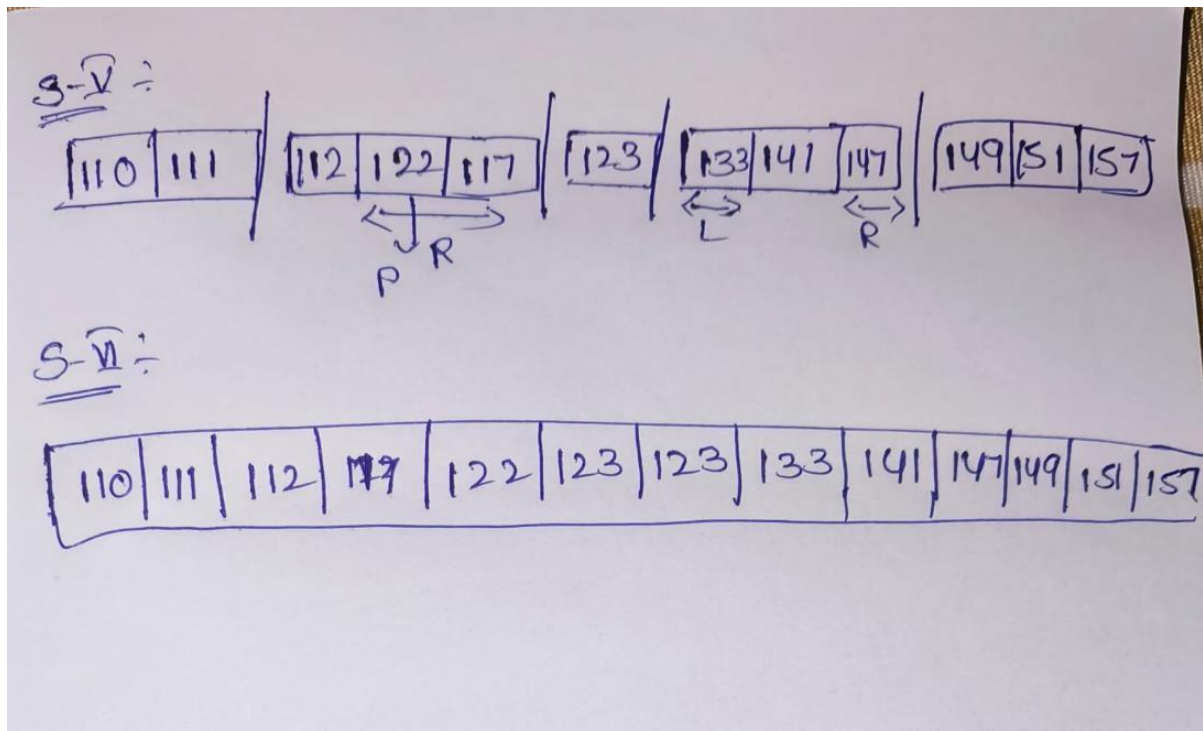 S-V ÷
110 111 112 122 117 123 133 141 147 149 151 157
L R
P R
S-VI ÷
110 111 112 117 122 123 123 133 141 147 149 151 157